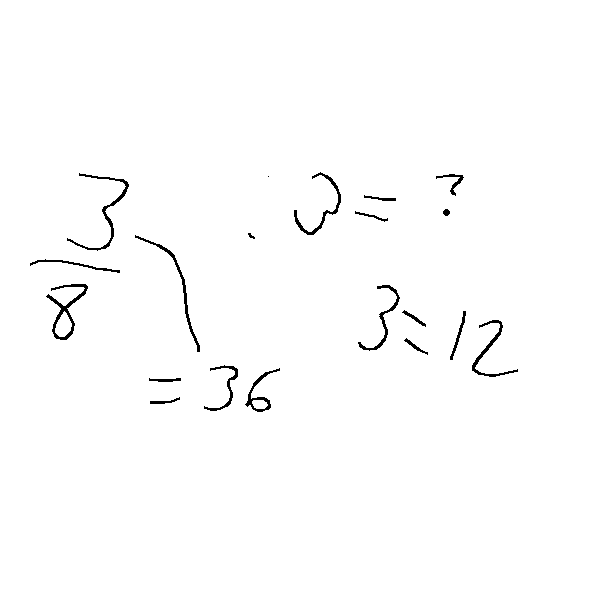 3/8
= 36
= ?
3 = 12